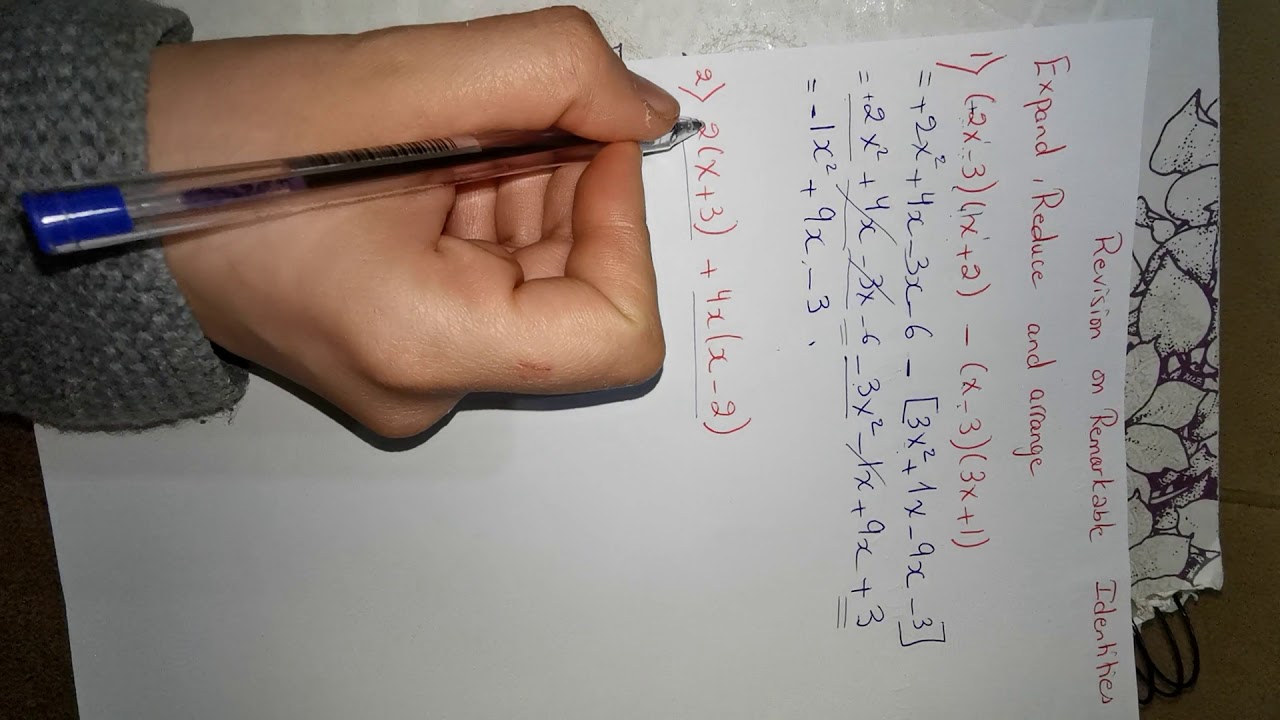 Revision on Remarkable Identities
Expand, Reduce and arrange
1) (+2x-3)(1x+2) - (x-3)(3x+1)
= +2x²+4x-3x-6 - [3x²+1x-9x-3]
= +2x²+4x-3x-6-3x²-1x+9x+3
= -1x²+9x-3.
2) 2(x+3) + 4x(x-2)